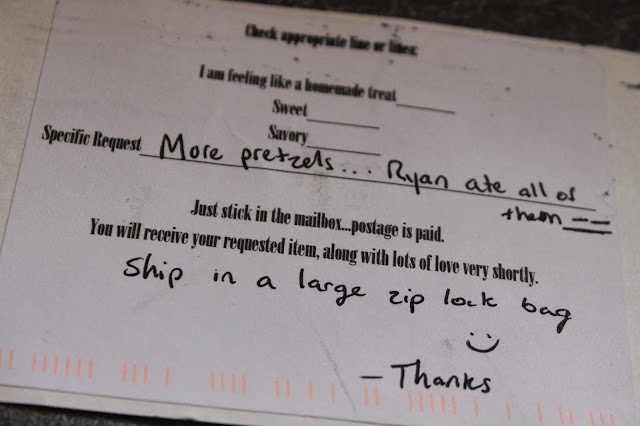 Check appropriate line or lines:
I am feeling like a homemade treat______
Sweet________
Savory________
Specific Request More pretzels... Ryan ate all of
them
Just stick in the mailbox...postage is paid.
You will receive your requested item, along with lots of love very shortly.
Ship in a large zip lock bag
:)
- Thanks